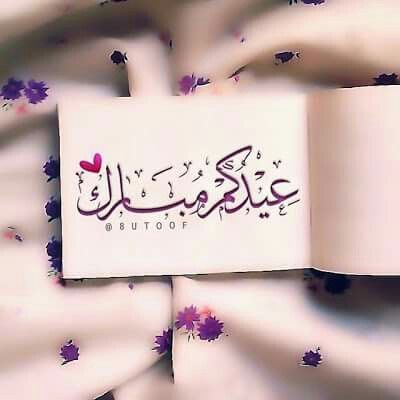 عِيدُكُم مُبَارَك
@8UTOOF